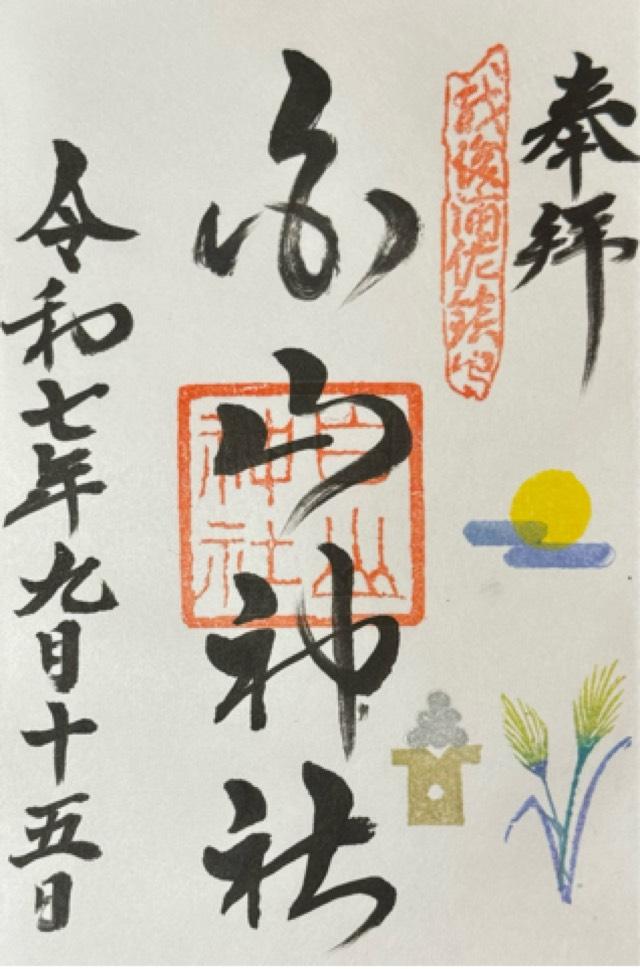 奉拝
越後浦佐鎮守
白山神社
白山神社
令和七年九月十五日